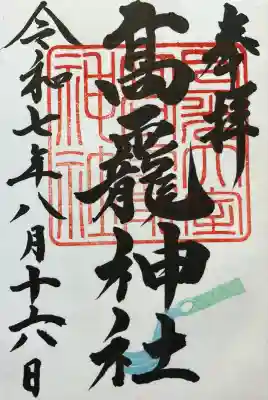 奉拝
髙靇神社
令和七年八月十六日